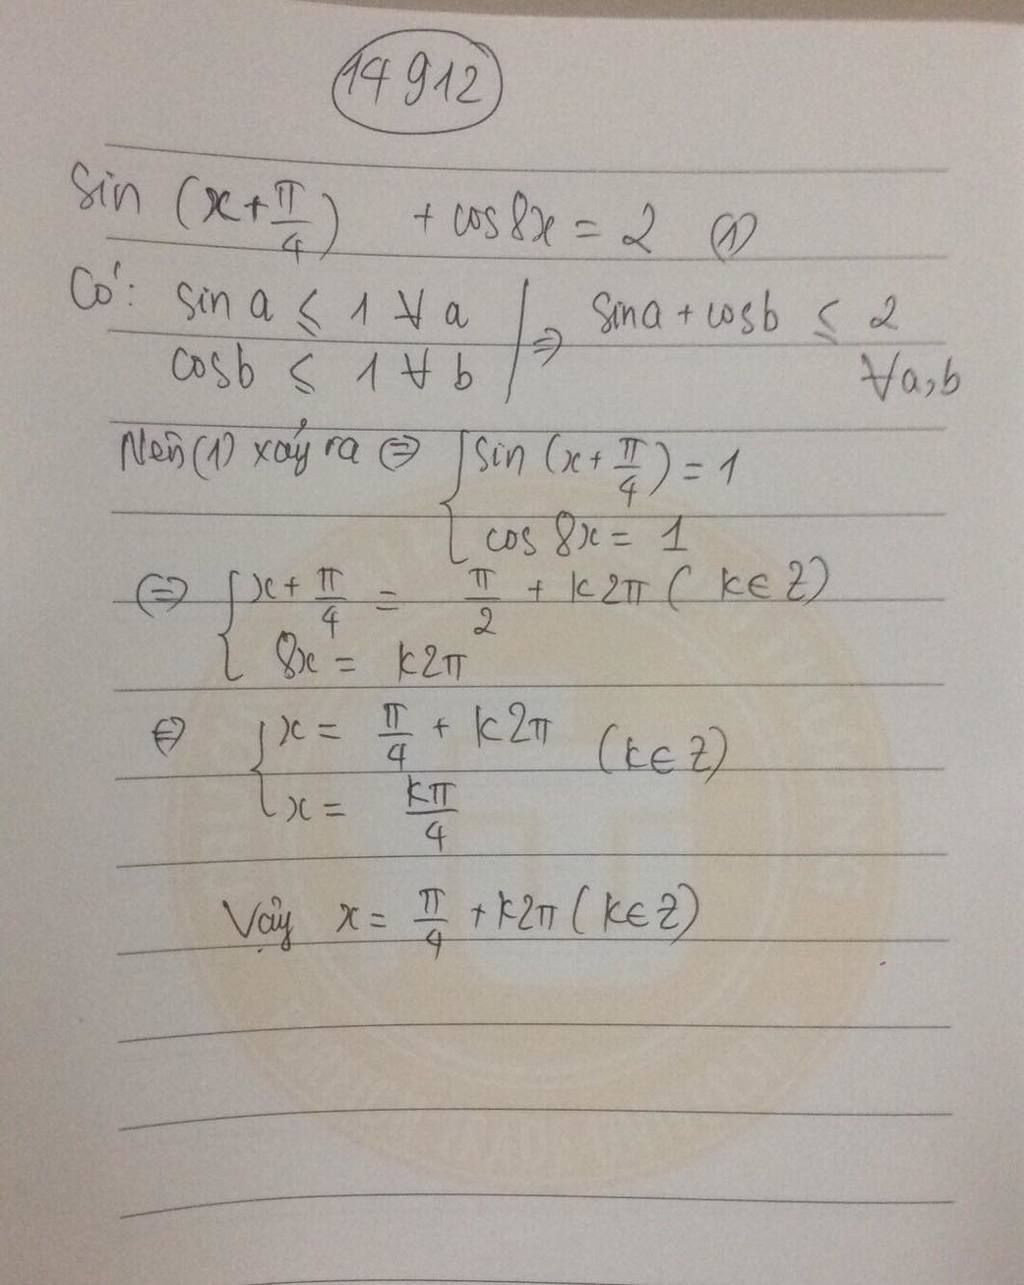 14912
sin (x + π/4) + cos8x = 2 (1)
Có: sin a ≤ 1 ∀ a
cosb ≤ 1 ∀ b
⇒ sina + cosb ≤ 2
∀a,b
Nên (1) xảy ra ⇔ { sin (x + π/4) = 1
cos 8x = 1
⇔ { x + π/4 = π/2 + k2π ( k ∈ Z)
8x = k2π
⇔ { x = π/4 + k2π (k ∈ Z)
x = kπ/4
Vậy x = π/4 + k2π ( k ∈ Z)